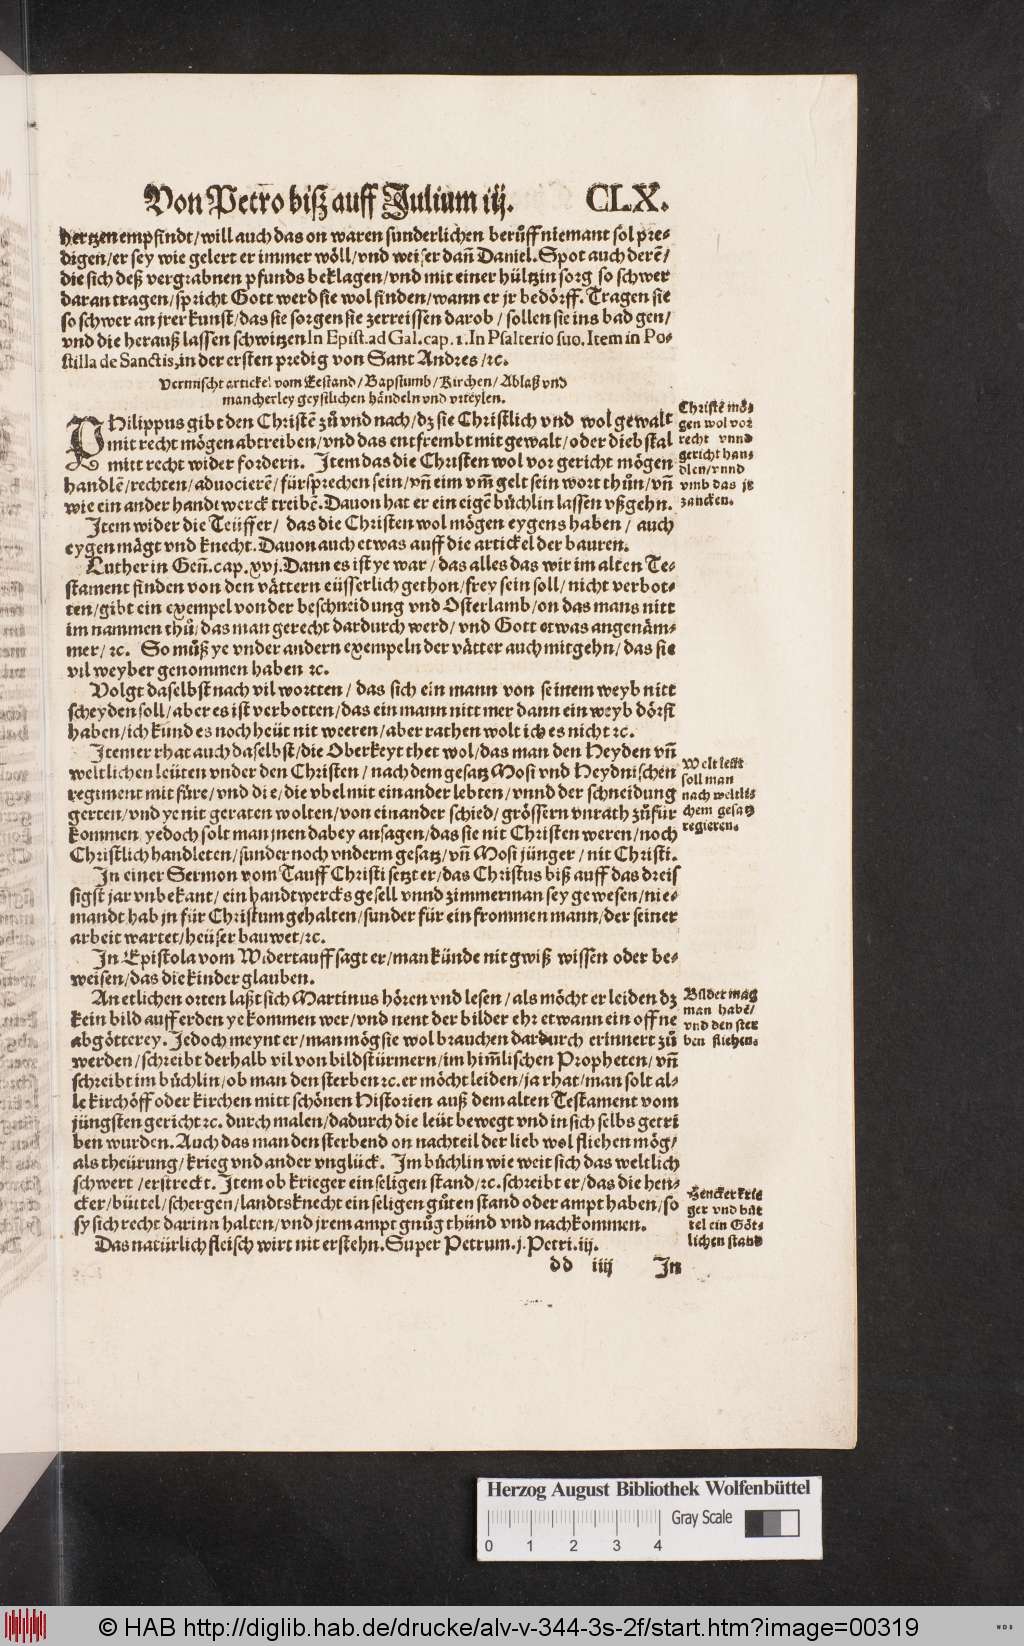 Von Petro biß auff Julium iij. CLX.
hertzen empfindt/will auch das on waren sunderlichen berůff niemant sol pre-
digen/er sey wie gelert er immer wöll/vnd weiser dañ Daniel. Spot auch derē/
die sich deß vergrabnen pfunds beklagen/vnd mit einer hültzin sorg so schwer
daran tragen/spricht Gott werd sie wol finden/wann er jr bedörff. Tragen sie
so schwer an jrer kunst/das sie sorgen sie zerreissen darob/sollen sie ins bad gen/
vnd die herauß lassen schwitzen In Epist. ad Gal. cap. 1. In Psalterio suo. Item in Po-
stilla de Sanctis, in der ersten predig von Sant Andres/ꝛc.
Vermischt artickel vom Eestand/Bapstumb/Kirchen/Ablaß vnd
mancherley geystlichen händeln vnd vrteylen.
PHilippus gibt den Christē zů vnd nach/dz sie Christlich vnd wol gewalt
mit recht mögen abtreiben/vnd das entfrembt mit gewalt/oder diebstal
mitt recht wider fordern. Item das die Christen wol vor gericht mögen
handlē/rechten/aduocierē/fürsprechen sein/vñ eim vm̃ gelt sein wort thůn/vñ
wie ein ander handtwerck treibē. Dauon hat er ein eigē bůchlin lassen vßgehn.
Christē mö-
gen wol vor
recht vnnd
gericht han-
dlen/vnnd
vmb das jr
zancken.
Item wider die Teüffer/ das die Christen wol mögen eygens haben/ auch
eygen mägt vnd knecht. Dauon auch etwas auff die artickel der bauren.
Luther in Geñ. cap. xvj. Dann es ist ye war/das alles das wir im alten Te-
stament finden von den vättern eüsserlich gethon/frey sein soll/nicht verbot-
ten/gibt ein exempel von der beschneidung vnd Osterlamb/on das mans nitt
im nammen thů/das man gerecht dardurch werd/vnd Gott etwas angenäm-
mer/ꝛc. So můß ye vnder andern exempeln der vätter auch mitgehn/das sie
vil weyber genommen haben ꝛc.
Volgt daselbst nach vil wortten/das sich ein mann von seinem weyb nitt
scheyden soll/aber es ist verbotten/das ein mann nitt mer dann ein weyb dörfft
haben/ich kund es noch heüt nit weeren/aber rathen wolt ich es nicht ꝛc.
Item er rhat auch daselbst/die Oberkeyt thet wol/das man den Heyden vñ
weltlichen leüten vnder den Christen/nach dem gesatz Mosi vnd Heydnischen
regiment mit füre/vnd die/die vbel mit einander lebten/vnnd der schneidung
gerten/vnd ye nit geraten wolten/von einander schied/grössern vnrath zůfür
kommen yedoch solt man jnen dabey ansagen/das sie nit Christen weren/noch
Christlich handleten/sunder noch vnderm gesatz/vñ Mosi jünger/nit Christi.
Weltlich
soll man
nach weltli-
chem gesatz
regieren.
In einer Sermon vom Tauff Christi setzt er/das Christus biß auff das dreis
sigst jar vnbekant/ein handtwercksgesell vnnd zimmerman sey gewesen/nie-
mandt hab jn für Christum gehalten/sunder für ein frommen mann/der seiner
arbeit wartet/heüser bauwet/ꝛc.
In Epistola vom Widertauff sagt er/man künde nit gwiß wissen oder be-
weisen/das die kinder glauben.
An etlichen orten laßt sich Martinus hören vnd lesen/als möcht er leiden dz
kein bild auff erden ye kommen wer/vnd nent der bilder ehr etwann ein offne
abgötterey. Jedoch meynt er/man mög sie wol brauchen dardurch erinnert zů
werden/schreibt derhalb vil von bildstürmern/im him̃lischen Propheten/vñ
schreibt im bůchlin/ob man den sterben ꝛc. er möcht leiden/ja rhat/man solt al-
le kirchöff oder kirchen mitt schönen Historien auß dem alten Testament vom
jüngsten gericht ꝛc. durch malen/dadurch die leüt bewegt vnd in sich selbs getri
ben wurden. Auch das man den sterbend on nachteil der lieb wol fliehen mög/
als theürung/krieg vnd ander vnglück. Im bůchlin wie weit sich das weltlich
schwert/erstreckt. Item ob krieger ein seligen stand/ꝛc. schreibt er/das die hen-
cker/büttel/schergen/landtsknecht ein seligen gůten stand oder ampt haben/so
sy sich recht darinn halten/vnd jrem ampt gnůg thünd vnd nachkommen.
Bilder mag
man habē/
vnd den ster
ben fliehen.
Hencker krie
ger vnd büt
tel ein Göt-
lichen stand
Das natürlich fleisch wirt nit erstehn. Super Petrum. j. Petri. iij.
dd iiij In
Herzog August Bibliothek Wolfenbüttel
0 1 2 3 4
Gray Scale
© HAB http://diglib.hab.de/drucke/alv-v-344-3s-2f/start.htm?image=00319